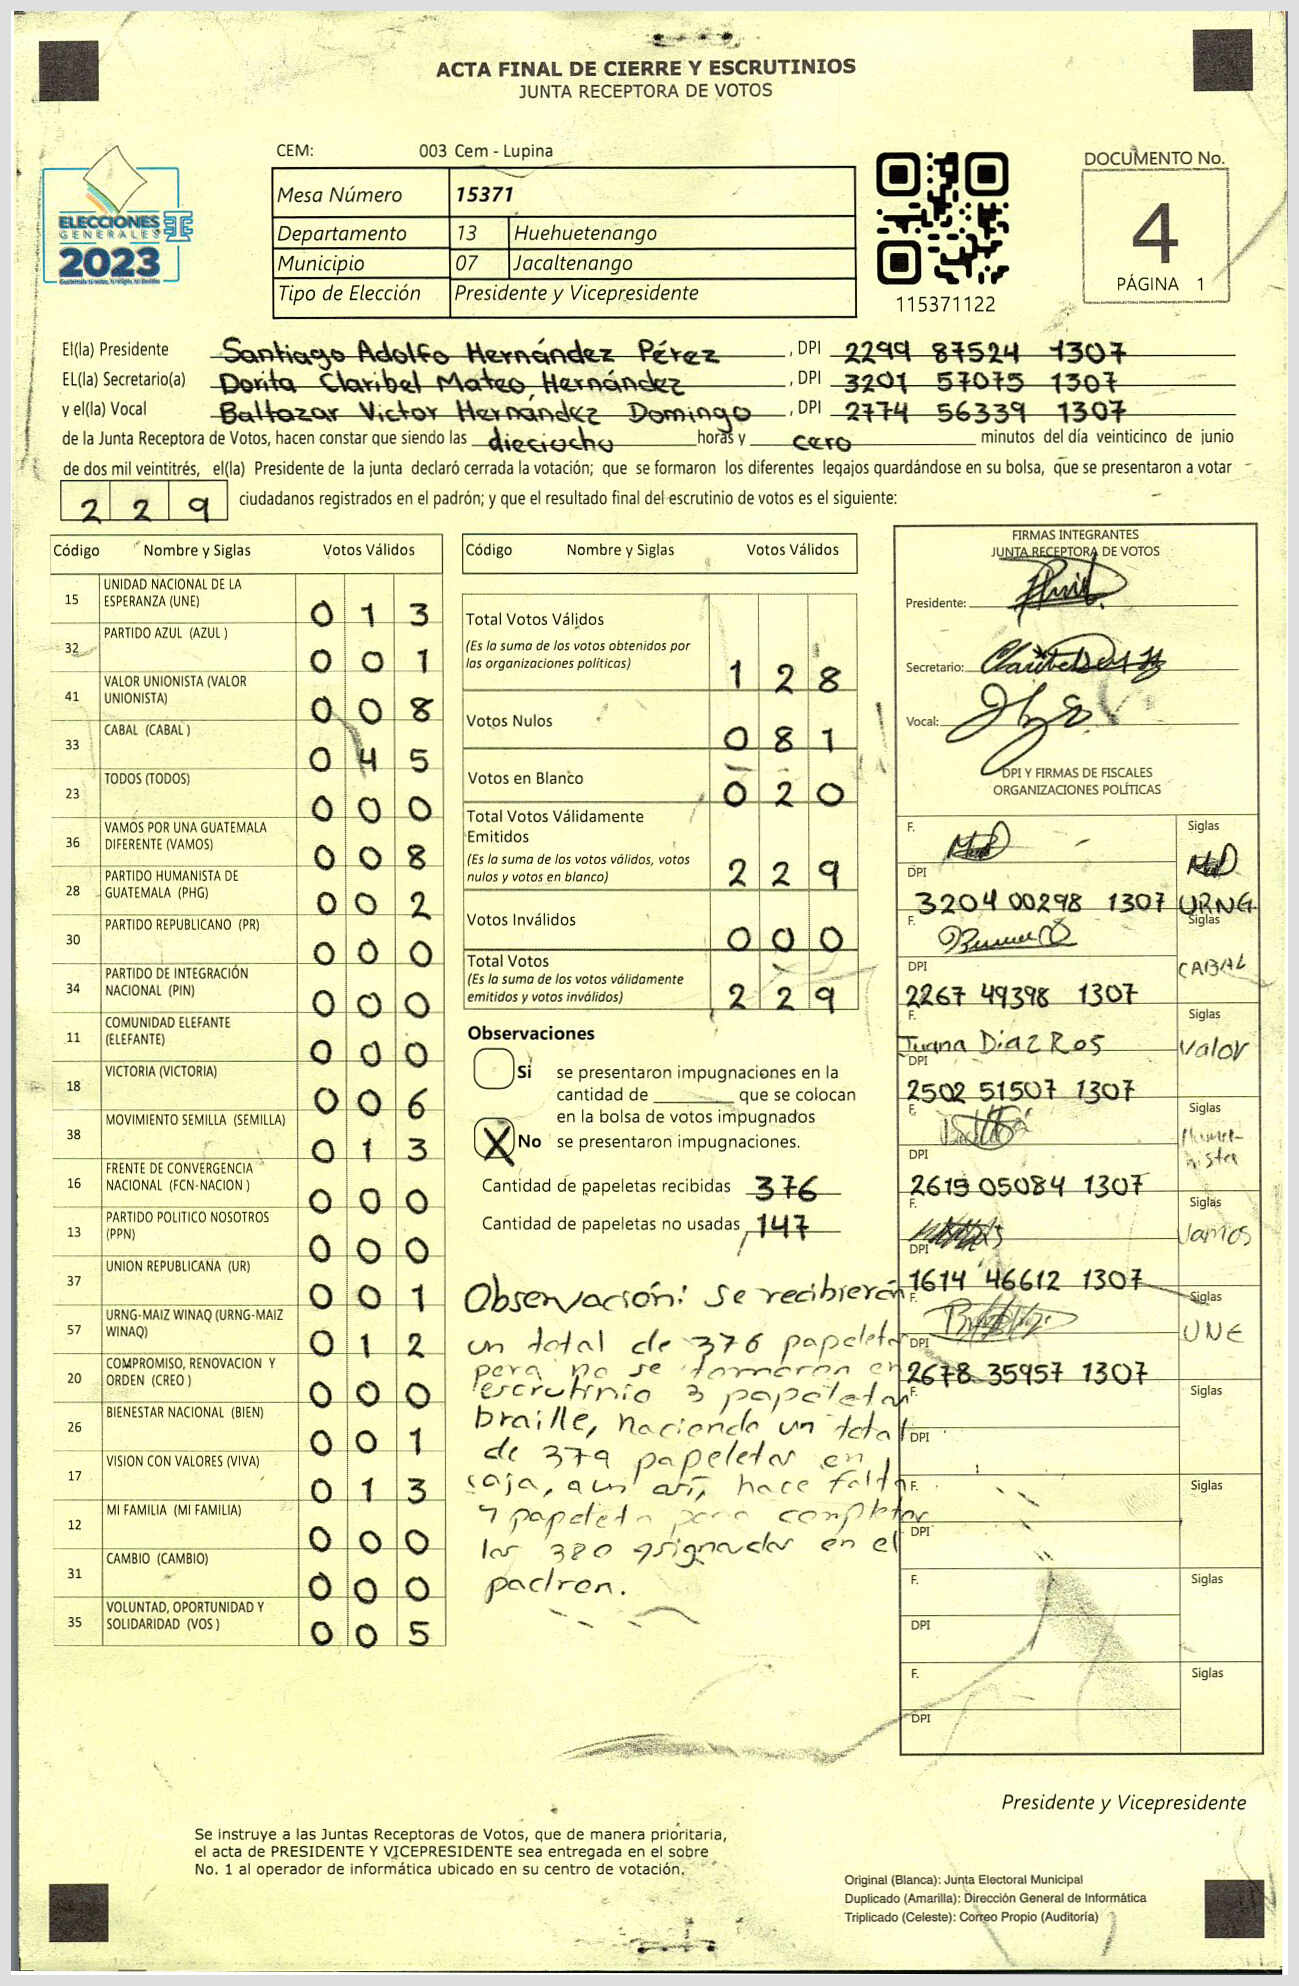 ACTA FINAL DE CIERRE Y ESCRUTINIOS
JUNTA RECEPTORA DE VOTOS
CEM: 003 Cem - Lupina
DOCUMENTO No.
4
PÁGINA 1
ELECCIONES
GENERALES
2023
Mesa Número 15371
Departamento 13 Huehuetenango
Municipio 07 Jacaltenango
Tipo de Elección Presidente y Vicepresidente
115371122
El(la) Presidente Santiago Adolfo Hernández Pérez , DPI 2299 87524 1307
EL(la) Secretario(a) Dorita Claribel Mateo Hernández , DPI 3201 57075 1307
y el(la) Vocal Baltazar Victor Hernández Domingo , DPI 2774 56339 1307
de la Junta Receptora de Votos, hacen constar que siendo las dieciocho horas y cero minutos del día veinticinco de junio
de dos mil veintitrés, el(la) Presidente de la junta declaró cerrada la votación; que se formaron los diferentes legajos quardándose en su bolsa, que se presentaron a votar
2 2 9 ciudadanos registrados en el padrón; y que el resultado final del escrutinio de votos es el siguiente:
Código Nombre y Siglas Votos Válidos
15 UNIDAD NACIONAL DE LA
ESPERANZA (UNE) 0 1 3
32 PARTIDO AZUL (AZUL ) 0 0 1
41 VALOR UNIONISTA (VALOR
UNIONISTA) 0 0 8
33 CABAL (CABAL ) 0 4 5
23 TODOS (TODOS) 0 0 0
36 VAMOS POR UNA GUATEMALA
DIFERENTE (VAMOS) 0 0 8
28 PARTIDO HUMANISTA DE
GUATEMALA (PHG) 0 0 2
30 PARTIDO REPUBLICANO (PR) 0 0 0
34 PARTIDO DE INTEGRACIÓN
NACIONAL (PIN) 0 0 0
11 COMUNIDAD ELEFANTE
(ELEFANTE) 0 0 0
18 VICTORIA (VICTORIA) 0 0 6
38 MOVIMIENTO SEMILLA (SEMILLA) 0 1 3
16 FRENTE DE CONVERGENCIA
NACIONAL (FCN-NACION ) 0 0 0
13 PARTIDO POLITICO NOSOTROS
(PPN) 0 0 0
37 UNION REPUBLICANA (UR) 0 0 1
57 URNG-MAIZ WINAQ (URNG-MAIZ
WINAQ) 0 1 2
20 COMPROMISO, RENOVACION Y
ORDEN (CREO ) 0 0 0
26 BIENESTAR NACIONAL (BIEN) 0 0 1
17 VISION CON VALORES (VIVA) 0 1 3
12 MI FAMILIA (MI FAMILIA) 0 0 0
31 CAMBIO (CAMBIO) 0 0 0
35 VOLUNTAD, OPORTUNIDAD Y
SOLIDARIDAD (VOS ) 0 0 5
Código Nombre y Siglas Votos Válidos
Total Votos Válidos
(Es la suma de los votos obtenidos por
las organizaciones políticas) 1 2 8
Votos Nulos 0 8 1
Votos en Blanco 0 2 0
Total Votos Válidamente
Emitidos
(Es la suma de los votos válidos, votos
nulos y votos en blanco) 2 2 9
Votos Inválidos 0 0 0
Total Votos
(Es la suma de los votos válidamente
emitidos y votos inválidos) 2 2 9
Observaciones
Si se presentaron impugnaciones en la
cantidad de ________ que se colocan
en la bolsa de votos impugnados
X No se presentaron impugnaciones.
Cantidad de papeletas recibidas 376
Cantidad de papeletas no usadas 147
Observación: se recibierón
un total de 376 papeletas
pero no se tomaron en
escrutinio 3 papeletas
braille, haciendo un total
de 379 papeletas en
caja, aun así, hace falta
1 papeleta para completar
las 380 asignadas en el
padron.
FIRMAS INTEGRANTES
JUNTA RECEPTORA DE VOTOS
Presidente:
Secretario:
Vocal:
DPI Y FIRMAS DE FISCALES
ORGANIZACIONES POLÍTICAS
F. Siglas
DPI 3204 00298 1307 URNG
F. Siglas
DPI 2267 49398 1307 CABAL
F. Juana Diaz Ros Siglas
DPI 2502 51507 1307 Valor
F. Siglas Humanista
DPI 2615 05084 1307
F. Siglas Vamos
DPI 1614 46612 1307
F. Siglas UNE
DPI 2678 35957 1307
F. Siglas
DPI
F. Siglas
DPI
F. Siglas
DPI
F. Siglas
DPI
Presidente y Vicepresidente
Se instruye a las Juntas Receptoras de Votos, que de manera prioritaria,
el acta de PRESIDENTE Y VICEPRESIDENTE sea entregada en el sobre
No. 1 al operador de informática ubicado en su centro de votación.
Original (Blanca): Junta Electoral Municipal
Duplicado (Amarilla): Dirección General de Informática
Triplicado (Celeste): Correo Propio (Auditoría)